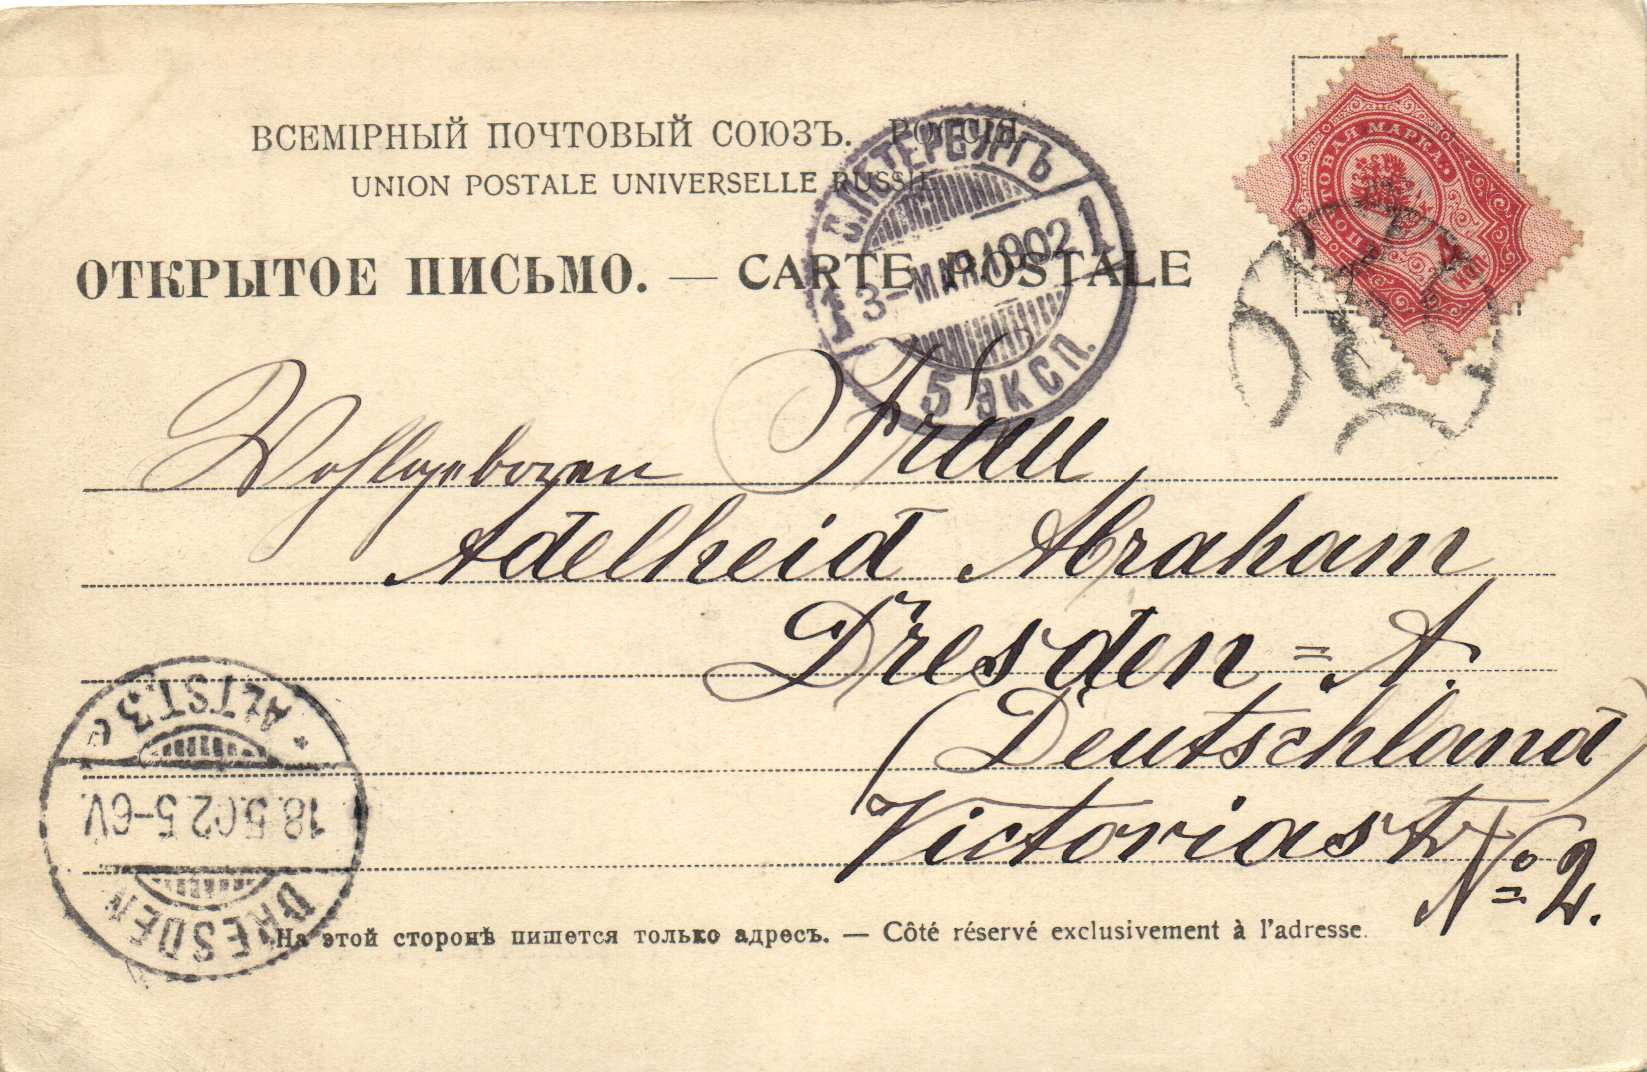 ВСЕМІРНЫЙ ПОЧТОВЫЙ СОЮЗЪ. РОССІЯ.
UNION POSTALE UNIVERSELLE RUSSIE
ОТКРЫТОЕ ПИСЬМО. — CARTE POSTALE
ПОЧТОВАЯ МАРКА.
С.ПЕТЕРБУРГЪ
1 3-МАЯ.1902 1
5 ЭКСП.
Wohlgeboren Frau
Adelheid Abraham
Dresden=A.
(Deutschland)
Victoriastr No 2.
DRESDEN
18.5.02 5-6V.
* ALTST. 3 e
На этой сторонѣ пишется только адресъ. — Côté réservé exclusivement à l'adresse.